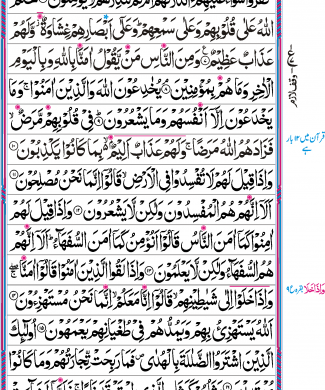 اللّٰهُ عَلٰى قُلُوْبِهِمْ وَعَلٰى سَمْعِهِمْ ؕ وَعَلٰٓى اَبْصَارِهِمْ غِشَاوَةٌ ۫ وَّلَهُمْ
عَذَابٌ عَظِيْمٌ ۷ وَمِنَ النَّاسِ مَنْ يَّقُوْلُ اٰمَنَّا بِاللّٰهِ وَبِالْيَوْمِ
الْاٰخِرِ وَمَا هُمْ بِمُؤْمِنِيْنَ ۸ يُخٰدِعُوْنَ اللّٰهَ وَالَّذِيْنَ اٰمَنُوْا ۚ وَمَا
يَخْدَعُوْنَ اِلَّاۤ اَنْفُسَهُمْ وَمَا يَشْعُرُوْنَ ۹ فِيْ قُلُوْبِهِمْ مَّرَضٌ ۙ
فَزَادَهُمُ اللّٰهُ مَرَضًا ۚ وَلَهُمْ عَذَابٌ اَلِيْمٌۢ ۙ بِمَا كَانُوْا يَكْذِبُوْنَ ۱۰
وَاِذَا قِيْلَ لَهُمْ لَا تُفْسِدُوْا فِي الْاَرْضِ ۙ قَالُوْۤا اِنَّمَا نَحْنُ مُصْلِحُوْنَ ۱۱
اَلَاۤ اِنَّهُمْ هُمُ الْمُفْسِدُوْنَ وَلٰكِنْ لَّا يَشْعُرُوْنَ ۱۲ وَاِذَا قِيْلَ لَهُمْ
اٰمِنُوْا كَمَاۤ اٰمَنَ النَّاسُ قَالُوْۤا اَنُؤْمِنُ كَمَاۤ اٰمَنَ السُّفَهَآءُ ؕ اَلَاۤ اِنَّهُمْ
هُمُ السُّفَهَآءُ وَلٰكِنْ لَّا يَعْلَمُوْنَ ۱۳ وَاِذَا لَقُوا الَّذِيْنَ اٰمَنُوْا قَالُوْۤا اٰمَنَّا ۖۚ
وَاِذَا خَلَوْا اِلٰى شَيٰطِيْنِهِمْ ۙ قَالُوْۤا اِنَّا مَعَكُمْ ۙ اِنَّمَا نَحْنُ مُسْتَهْزِءُوْنَ ۱۴
اَللّٰهُ يَسْتَهْزِئُ بِهِمْ وَيَمُدُّهُمْ فِيْ طُغْيَانِهِمْ يَعْمَهُوْنَ ۱۵ اُولٰٓئِكَ
الَّذِيْنَ اشْتَرَوُا الضَّلٰلَةَ بِالْهُدٰى ۪ فَمَا رَبِحَتْ تِّجَارَتُهُمْ وَمَا كَانُوْا
قرآن میں ۱۲ بار
ہے